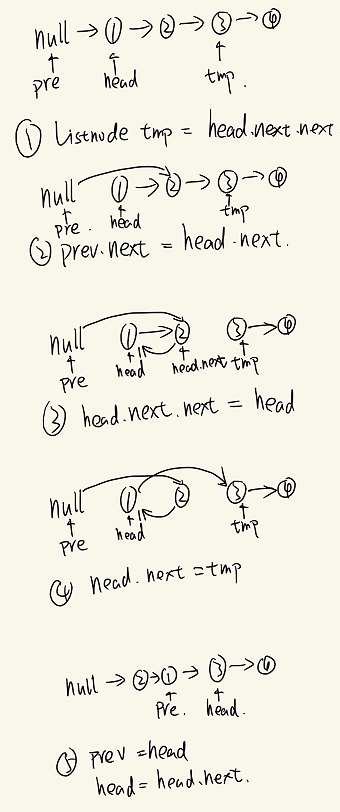 null → ① → ② → ③ → ④
pre head tmp.
① Listnode tmp = head.next.next
null ① → ② → ③ → ④
pre. head tmp
② prev.next = head.next.
null ① → ② ③ → ④
pre head head.next tmp
③ head.next.next = head
null ① ② ③ → ④
pre head tmp
④ head.next = tmp
null → ② → ① → ③ → ④
pre. head.
⑤ prev = head
head = head.next.